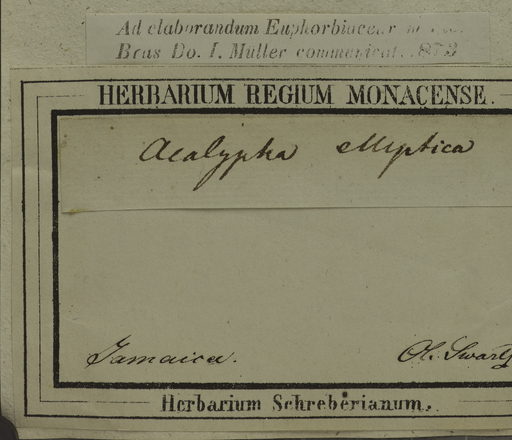 Ad elaborandum Euphorbiacear
Bras Do. I. Muller communicat. 1873
HERBARIUM REGIUM MONACENSE.
Acalypha elliptica
Jamaica.
Ol. Swartz
Herbarium Schreberianum.